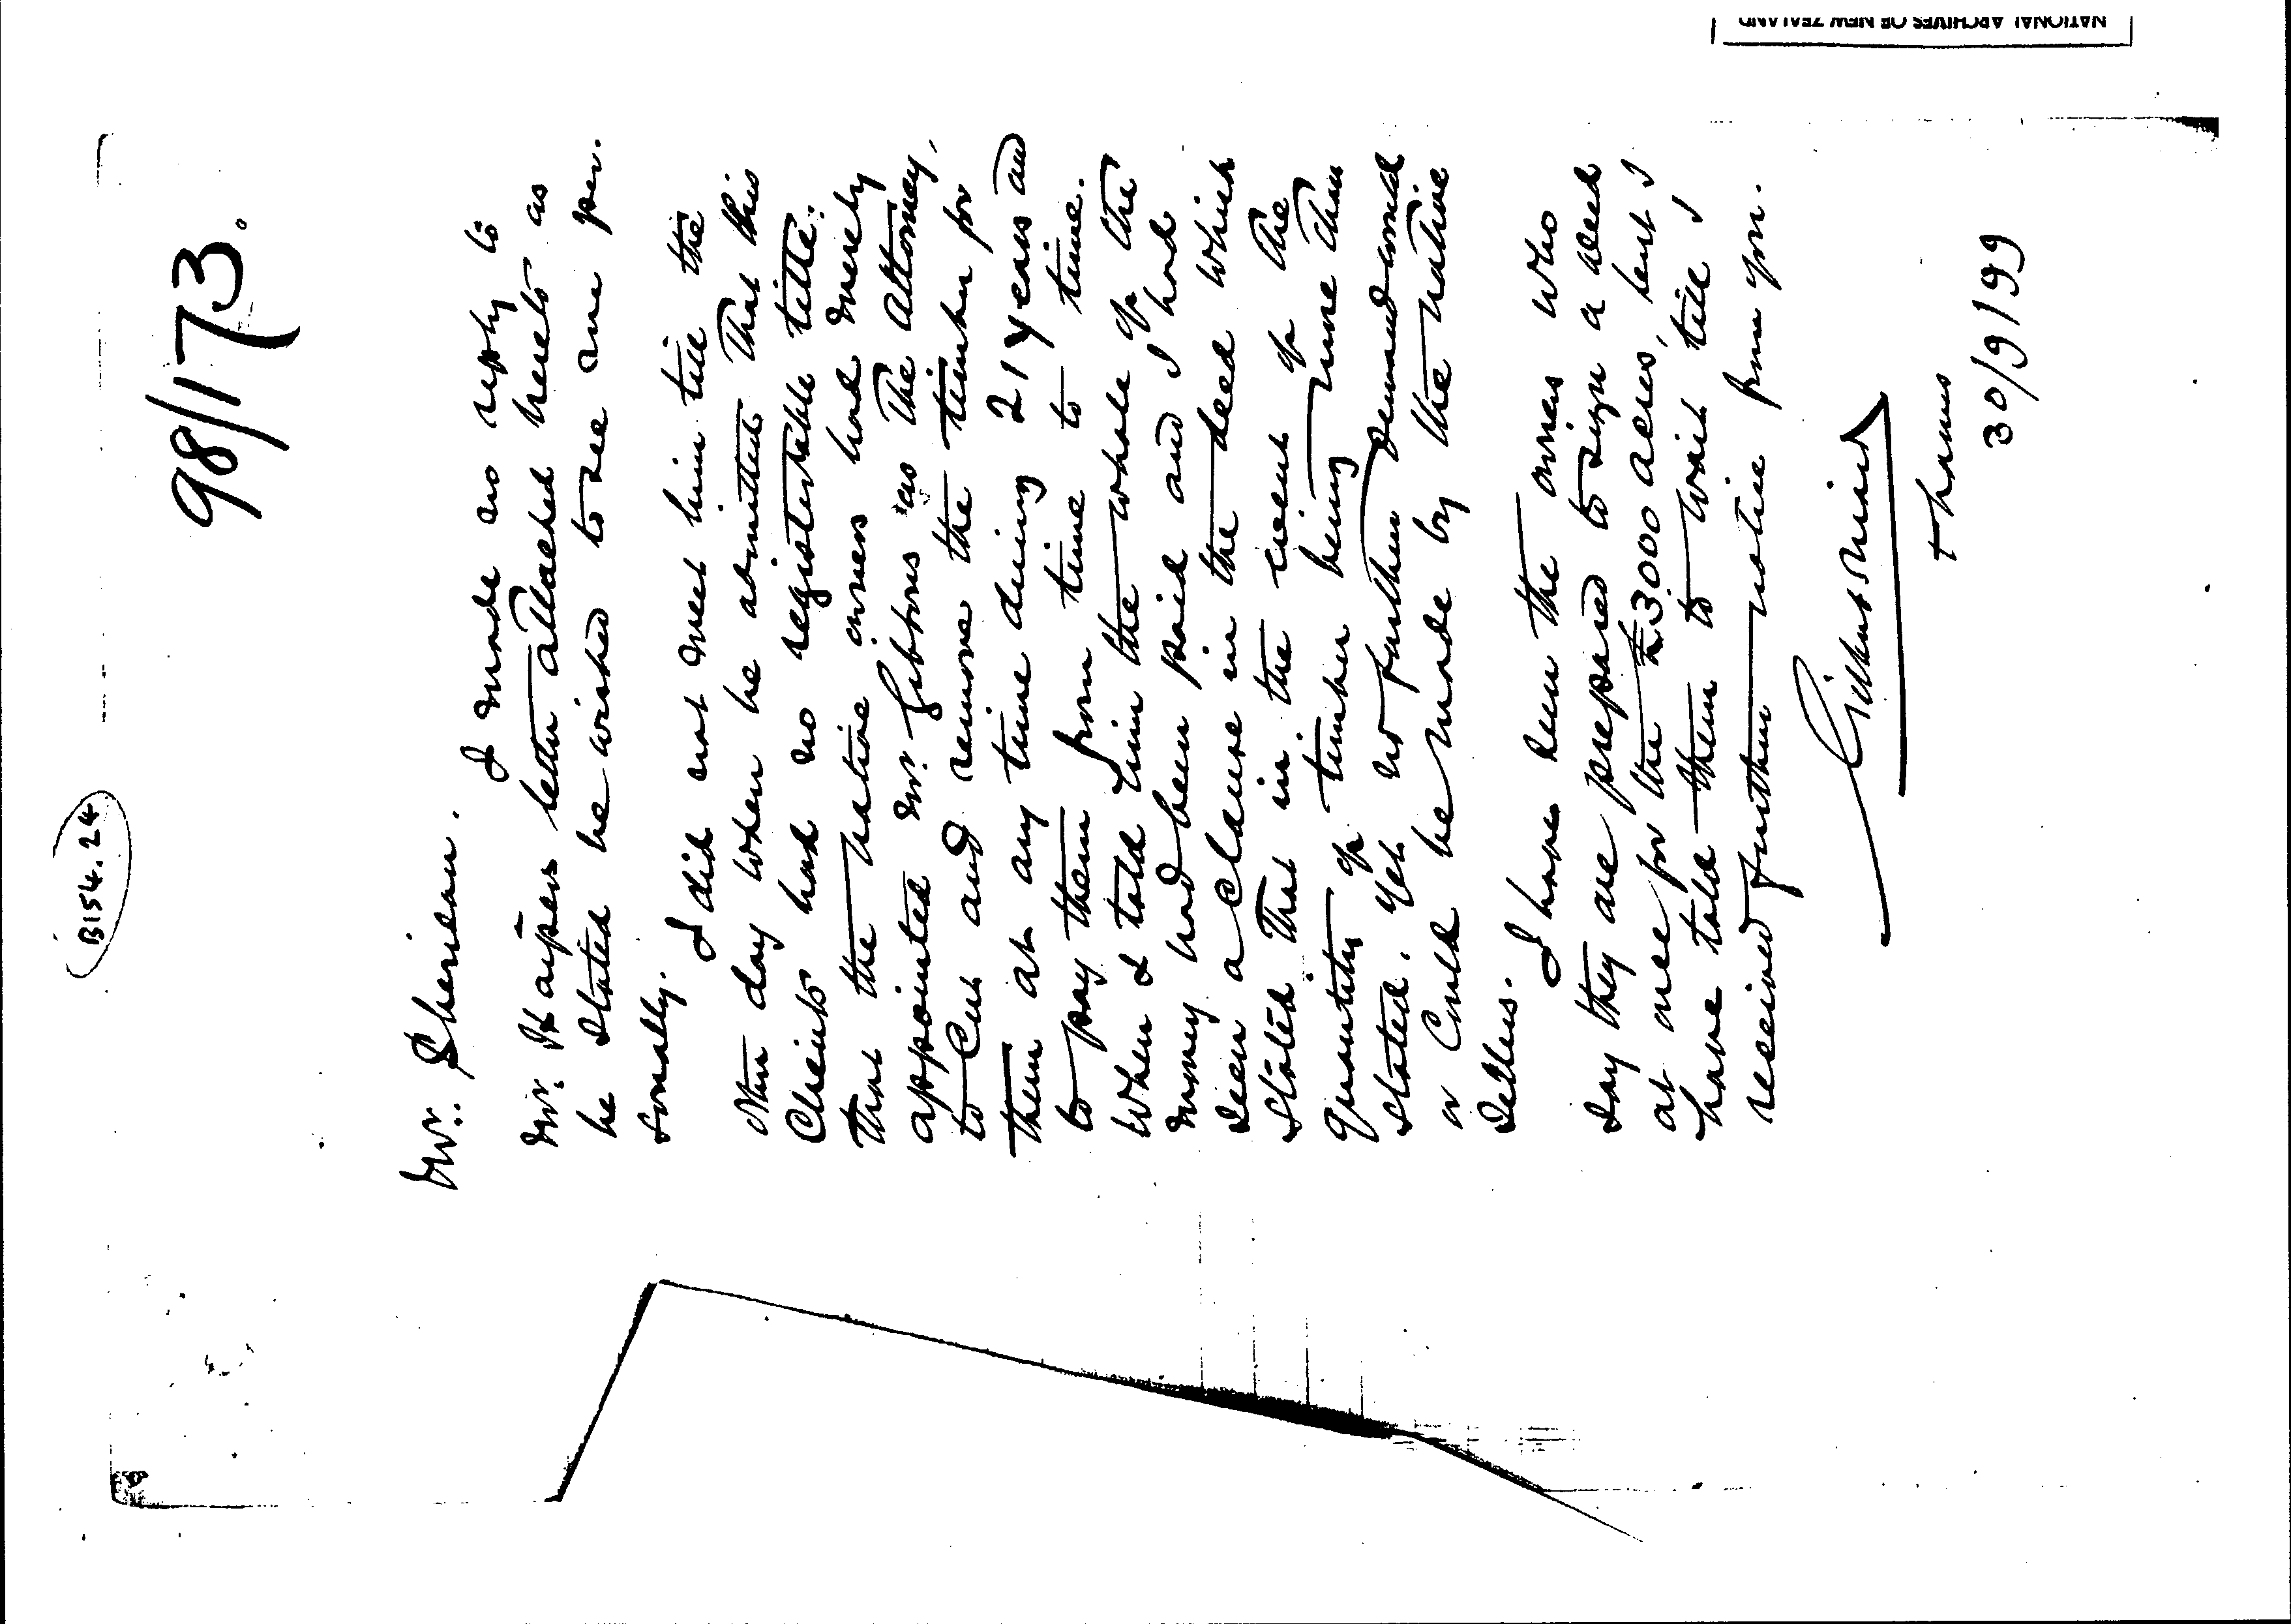 B154.24
98/173.
Mr. Sheridan.
I made no reply to
Mr. Napier's letter attached hereto as
he stated he wished to see me per-
sonally.
I did not meet him till the
other day when he admitted that his
Clients had no registerable title:
that the native owners had merely
appointed Mr. Gibbons as the Attorney,
to cut and remove the timber for
them at any time during 21 years and
to pay them from time to time.
When I told him the whole of the
money had been paid and I had
seen a clause in the deed which
stated that in the event of the
quantity of timber being more than
stated. Yet no further demand would
or could be made by the native
sellers.
I have seen the owners who
say they are prepared to sign a deed
at once for the £3000 acres, but I
have told them to wait till I
received further notice from you.
Gilbert Mair
Thames
30/9/99
NATIONAL ARCHIVES OF NEW ZEALAND